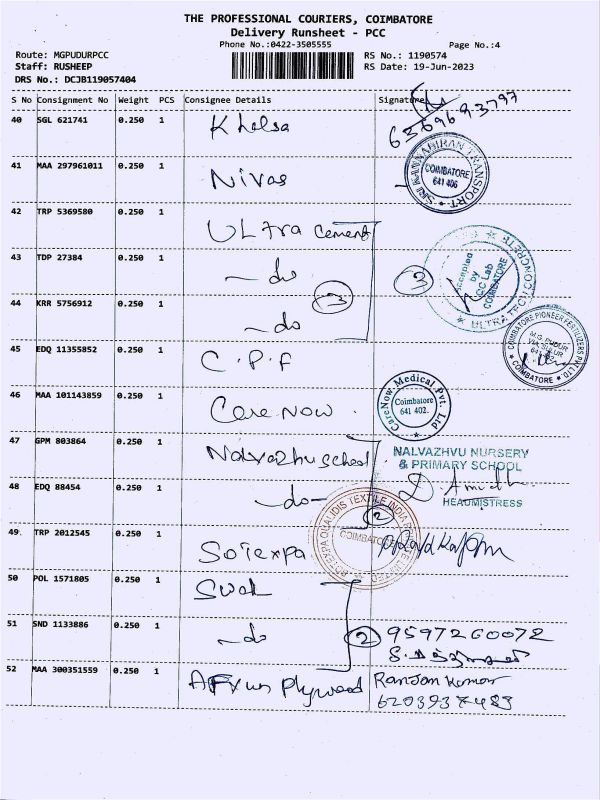 THE PROFESSIONAL COURIERS, COIMBATORE
Delivery Runsheet - PCC
Phone No.:0422-3505555
Page No.:4
Route: MGPUDURPCC
Staff: RUSHEEP
DRS No.: DCJB119057404
RS No.: 1190574
RS Date: 19-Jun-2023
S No Consignment No Weight PCS Consignee Details Signature
6369693797
40 SGL 621741 0.250 1 Khelsa
SRI KANNABIRAN TRANSPORT
COIMBATORE
641 406
41 MAA 297961011 0.250 1 Nivas
42 TRP 5369580 0.250 1 ULtra cement
43 TDP 27384 0.250 1 - do
3
3
Accepted
by
QC Lab
COIMBATORE
44 KRR 5756912 0.250 1 - do
COIMBATORE PIONEER FERTILIZERS PVT LTD
M.G. PUDUR
COIMBATORE
45 EDQ 11355852 0.250 1 C.P.F
46 MAA 101143859 0.250 1 Care Now.
CareNow Medical Pvt. Ltd
Coimbatore
641 402.
47 GPM 803864 0.250 1 Nalvazhu School
NALVAZHVU NURSERY
& PRIMARY SCHOOL
HEADMISTRESS
48 EDQ 88454 0.250 1 - do -
2
COIMBATORE
49. TRP 2012545 0.250 1 Soiexpa
50 POL 1571805 0.250 1 Swak
51 SND 1133886 0.250 1 - do 2 9597260072
52 MAA 300351559 0.250 1 Plywood Ranjan Kumar
6203937483